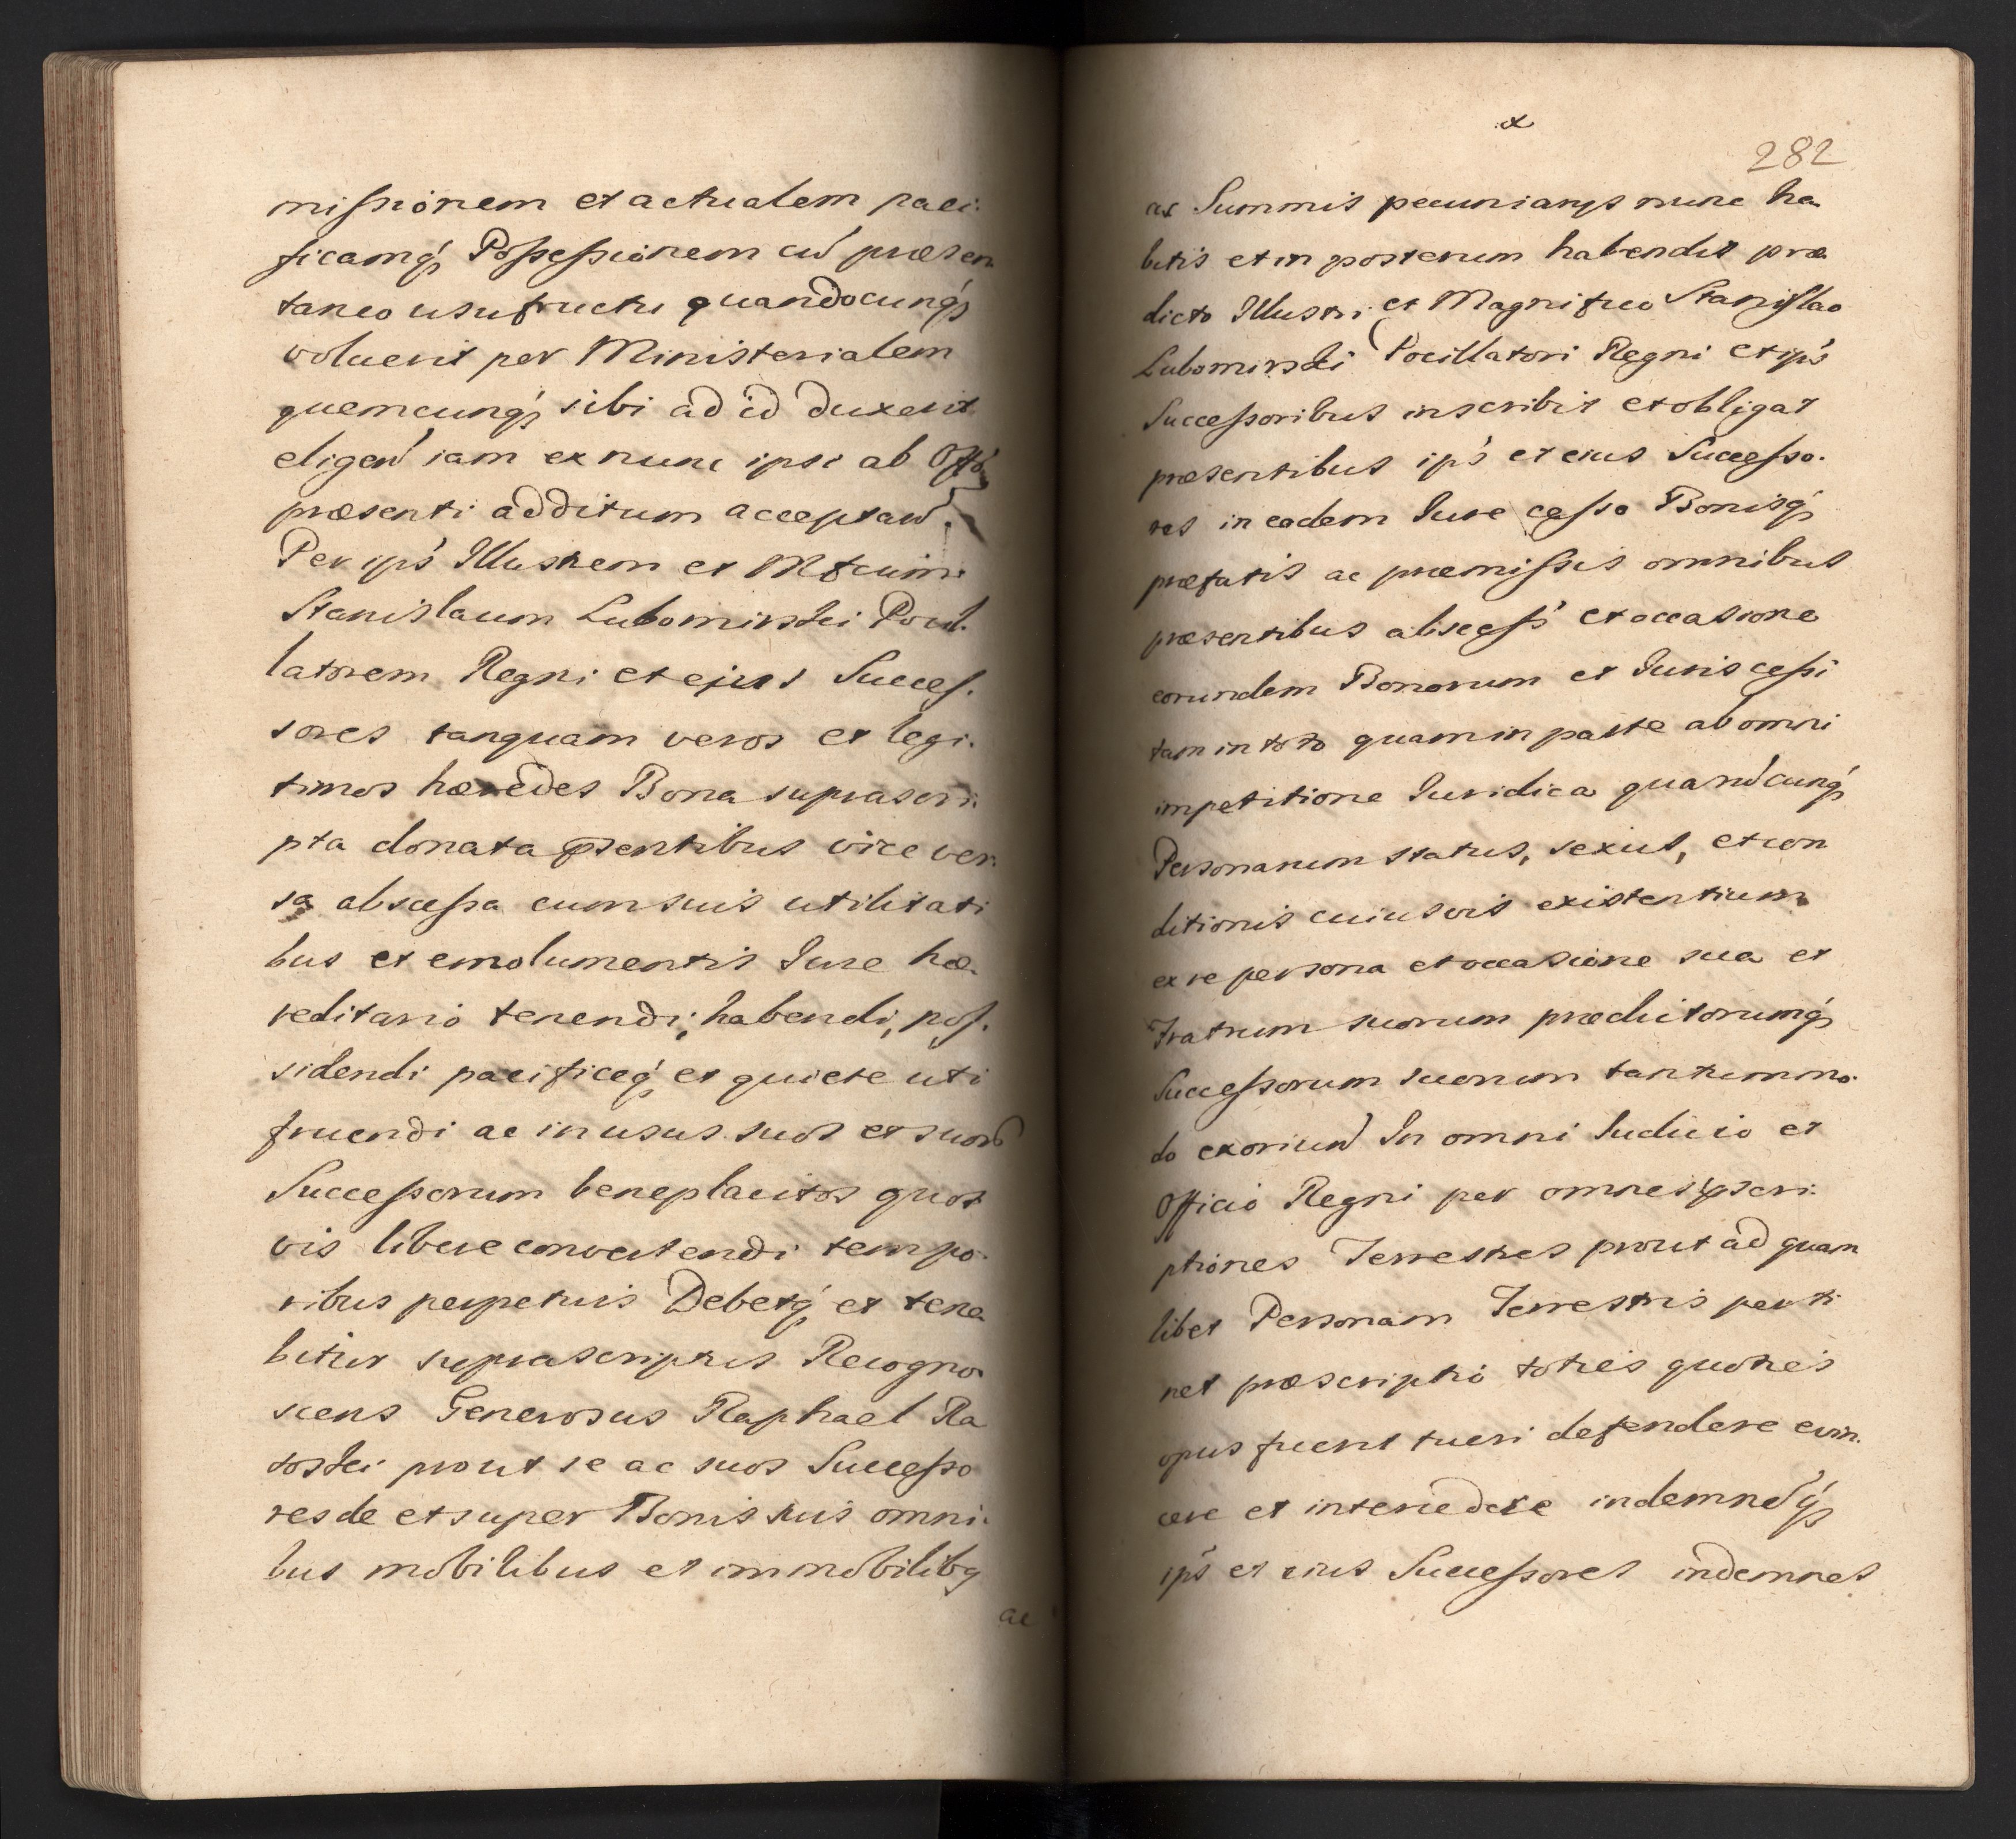 missionem et actualem paci:
ficamq́ Possessionem cũ præsen
taneo usufructu quandocunq́
voluerit per Ministerialem
quemcunq́ sibi ad id duxerit
eligeñ iam ex nunc ipsi ab Offo
præsenti additum acceptañ.
Per ips̃ Illustrem et Mfcum
Stanislaum Lubomirski Pocil.
latorem Regni et ejus Succes.
sores tanquam veros et legi.
timos hæredes Bona suprascri:
pta donata p̃sentibus vice ver.
sa abscessa cum suis utilitati
bus et emolumentis Iure hæ.
reditario tenendi, habendi, pos.
sidendi pacificeq́ et quiete uti
fruendi ac in usus suos et suorũ
Successorum beneplacitos quos
vis libere convertendi tempo.
ribus perpetuis Debetq́ et tene
bitur suprascriptus Recogno
scens Generosus Raphael Ra
tostei prout se ac suos Successo
res de et super Bonis suis omni.
bus mobilibus et immobilibq
ac
x
282
ac Summis pecuniarys nunc ha
bitis et in posterum habendis præ
dicto Illustri et Magnifico Stanislao
Lubomirski Pocillatori Regni et ips̃
Successoribus inscribit et obligat
præsentibus ips̃ et eius Successo.
res in eodem Iure cesso Bonisq́
præfatis ac præmissis omnibus
præsentibus abscess̃ et occasione
eorundem Bonorum et Iuris cessi
tam in toto quam in parte ab omni
impetitione Iuridica quarũcunq́
Personarum status, sexus, et con
ditionis cuiusvis existentium
ex re persona et occasione sua et
Fratrum suorum prædictorumq́
Successorum suorum tantummo.
do exoriũ In omni Iudicio et
Officio Regni per omnes p̃scri:
ptiones Terrestres prout ad quam
libet Personam Terrestris perti
net præscriptio toties quoties
opus fuerit tueri defendere evin.
cere et intercedere indemnẽq́
ips̃ et eius Successores indemnes